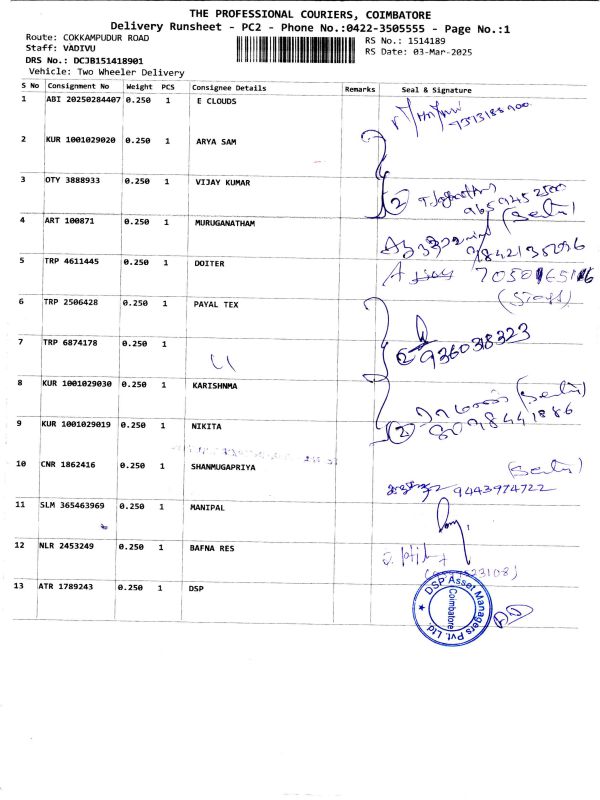 THE PROFESSIONAL COURIERS, COIMBATORE
Delivery Runsheet - PC2 - Phone No.:0422-3505555 - Page No.:1
Route: COKKAMPUDUR ROAD
RS No.: 1514189
Staff: VADIVU
RS Date: 03-Mar-2025
DRS No.: DCJB151418901
Vehicle: Two Wheeler Delivery
S No Consignment No Weight PCS Consignee Details Remarks Seal & Signature
1 ABI 20250284407 0.250 1 E CLOUDS
7373188900
2 KUR 1001029020 0.250 1 ARYA SAM
3 OTY 3888933 0.250 1 VIJAY KUMAR
2
9659452500
4 ART 100871 0.250 1 MURUGANATHAM
5 TRP 4611445 0.250 1 DOITER
6 TRP 2506428 0.250 1 PAYAL TEX
7 TRP 6874178 0.250 1
11
2
8 KUR 1001029030 0.250 1 KARISHNMA
9 KUR 1001029019 0.250 1 NIKITA
2 8098441886
10 CNR 1862416 0.250 1 SHANMUGAPRIYA
9443974722
11 SLM 365463969 0.250 1 MANIPAL
12 NLR 2453249 0.250 1 BAFNA RES
13 ATR 1789243 0.250 1 DSP
DSP Asset Managers Pvt. Ltd.
Coimbatore